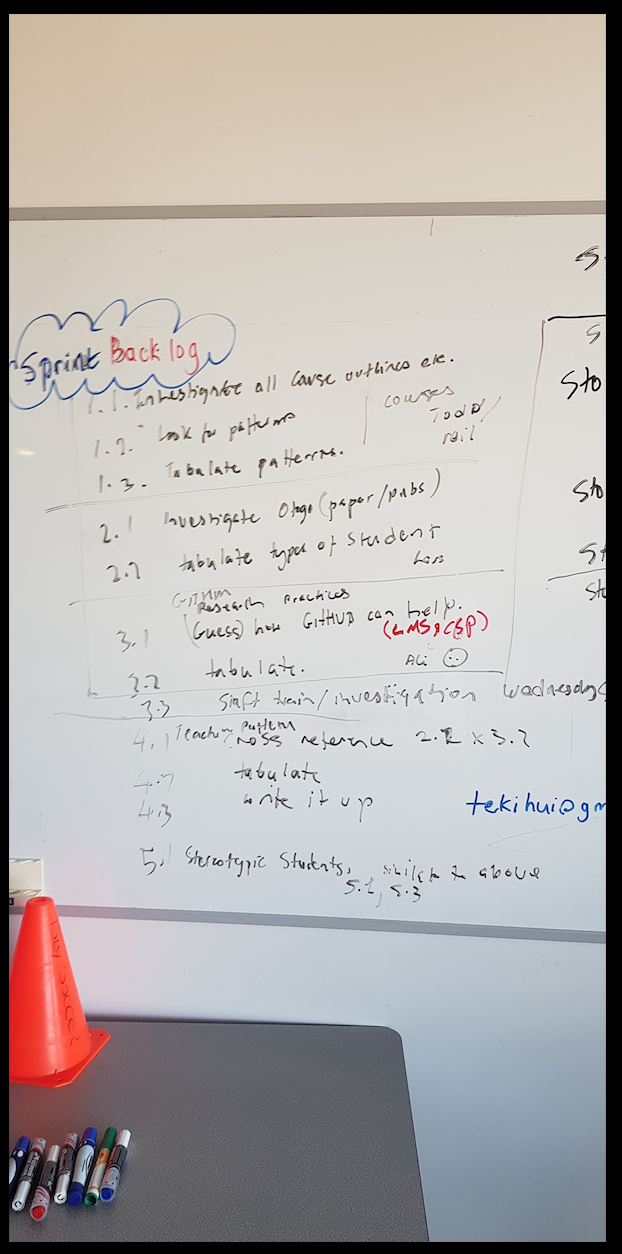 Sprint Backlog
1.1. Investigate all course outlines etc.
1.2. Look for patterns
courses
Todd/
1.3. Tabulate patterns.
2.1 Investigate Otago (paper/pubs)
2.2 tabulate types of Student
Lars
GitHub
Research practices
3.1 (Guess) how GitHub can help.
(LMS & CSP)
3.2 tabulate.
Ali
3.3 Staft train/investigation wednesday
4.1 Teaching Pattern
cross reference 2.2 x 3.2
4.2 tabulate
4.3 write it up
tekihui@gm
5.1 Stereotypic Students, similar to above
5.2, 5.3
S
Sto
Sto
St
Sto